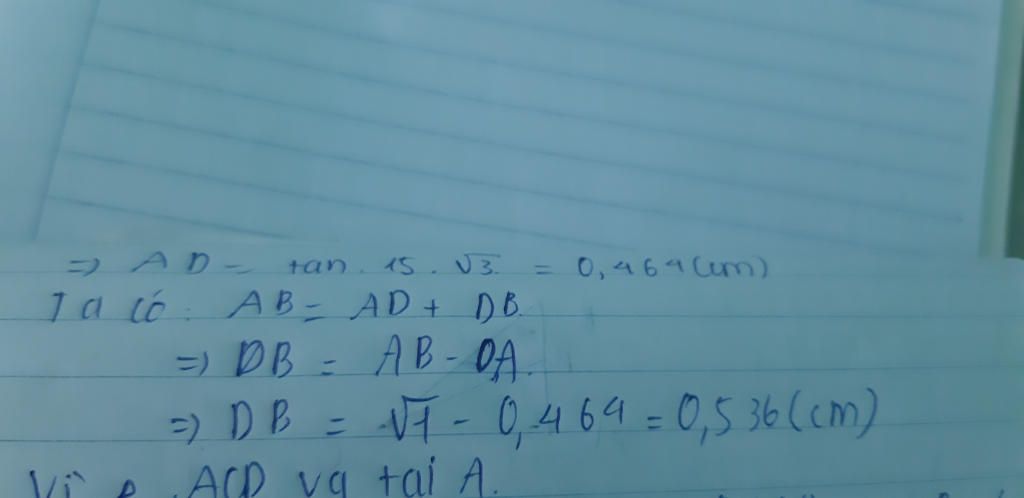 => AD = tan . 15 . √3 = 0,464 (cm)
Ta có : AB = AD + DB.
=> DB = AB - DA.
=> DB = √1 - 0,464 = 0,536 (cm)
Vì ACD va tai A.